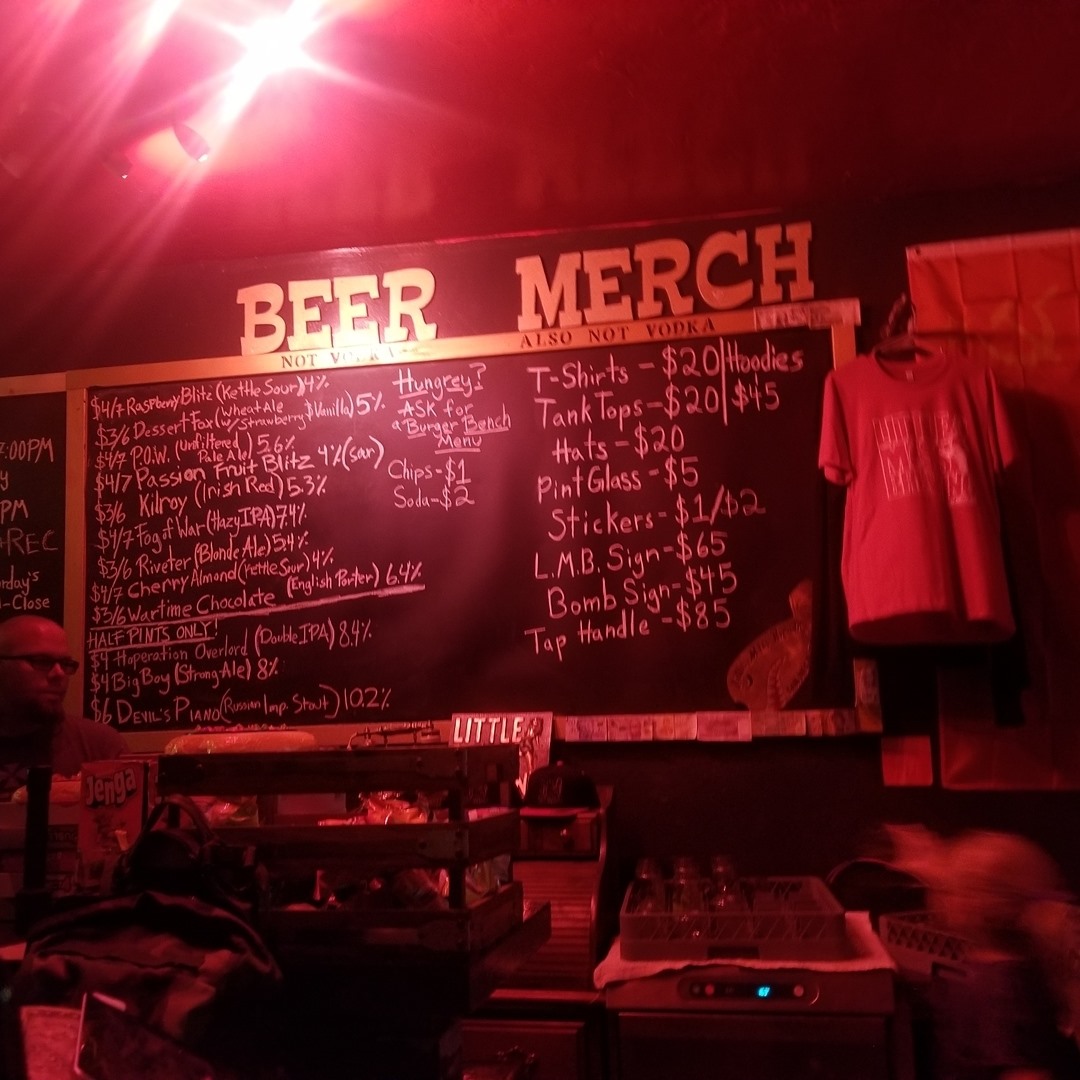 BEER MERCH
NOT VODKA
ALSO NOT VODKA
$4/7 Raspberry Blitz (Kettle Sour) 4%
$3/6 Dessert Fox (Wheat Ale w/ Strawberry $ Vanilla) 5%
$4/7 P.O.W. (Unfiltered Pale Ale) 5.6%
$4/7 Passion Fruit Blitz 4% (sour)
$3/6 Kilroy (Irish Red) 5.3%
$4/7 Fog of War (Hazy IPA) 7.4%
$3/6 Riveter (Blonde Ale) 5.4%
$4/7 Cherry Almond (Kettle Sour) 4%
$3/6 Wartime Chocolate (English Porter) 6.4%
HALF PINTS ONLY!
$4 Hoperation Overlord (Double IPA) 8.4%
$4 Big Boy (Strong Ale) 8%
$6 DEVIL'S PIANO (Russian Imp. Stout) 10.2%
Hungrey?
ASK for
a Burger Bench
Menu
Chips-$1
Soda-$2
T-Shirts - $20
Tank Tops - $20
Hoodies
$45
Hats - $20
Pint Glass - $5
Stickers - $1/$2
L.M.B. Sign - $65
Bomb Sign - $45
Tap Handle - $85
:00PM
y
PM
REC
rday's
-Close
LITTLE
Jenga